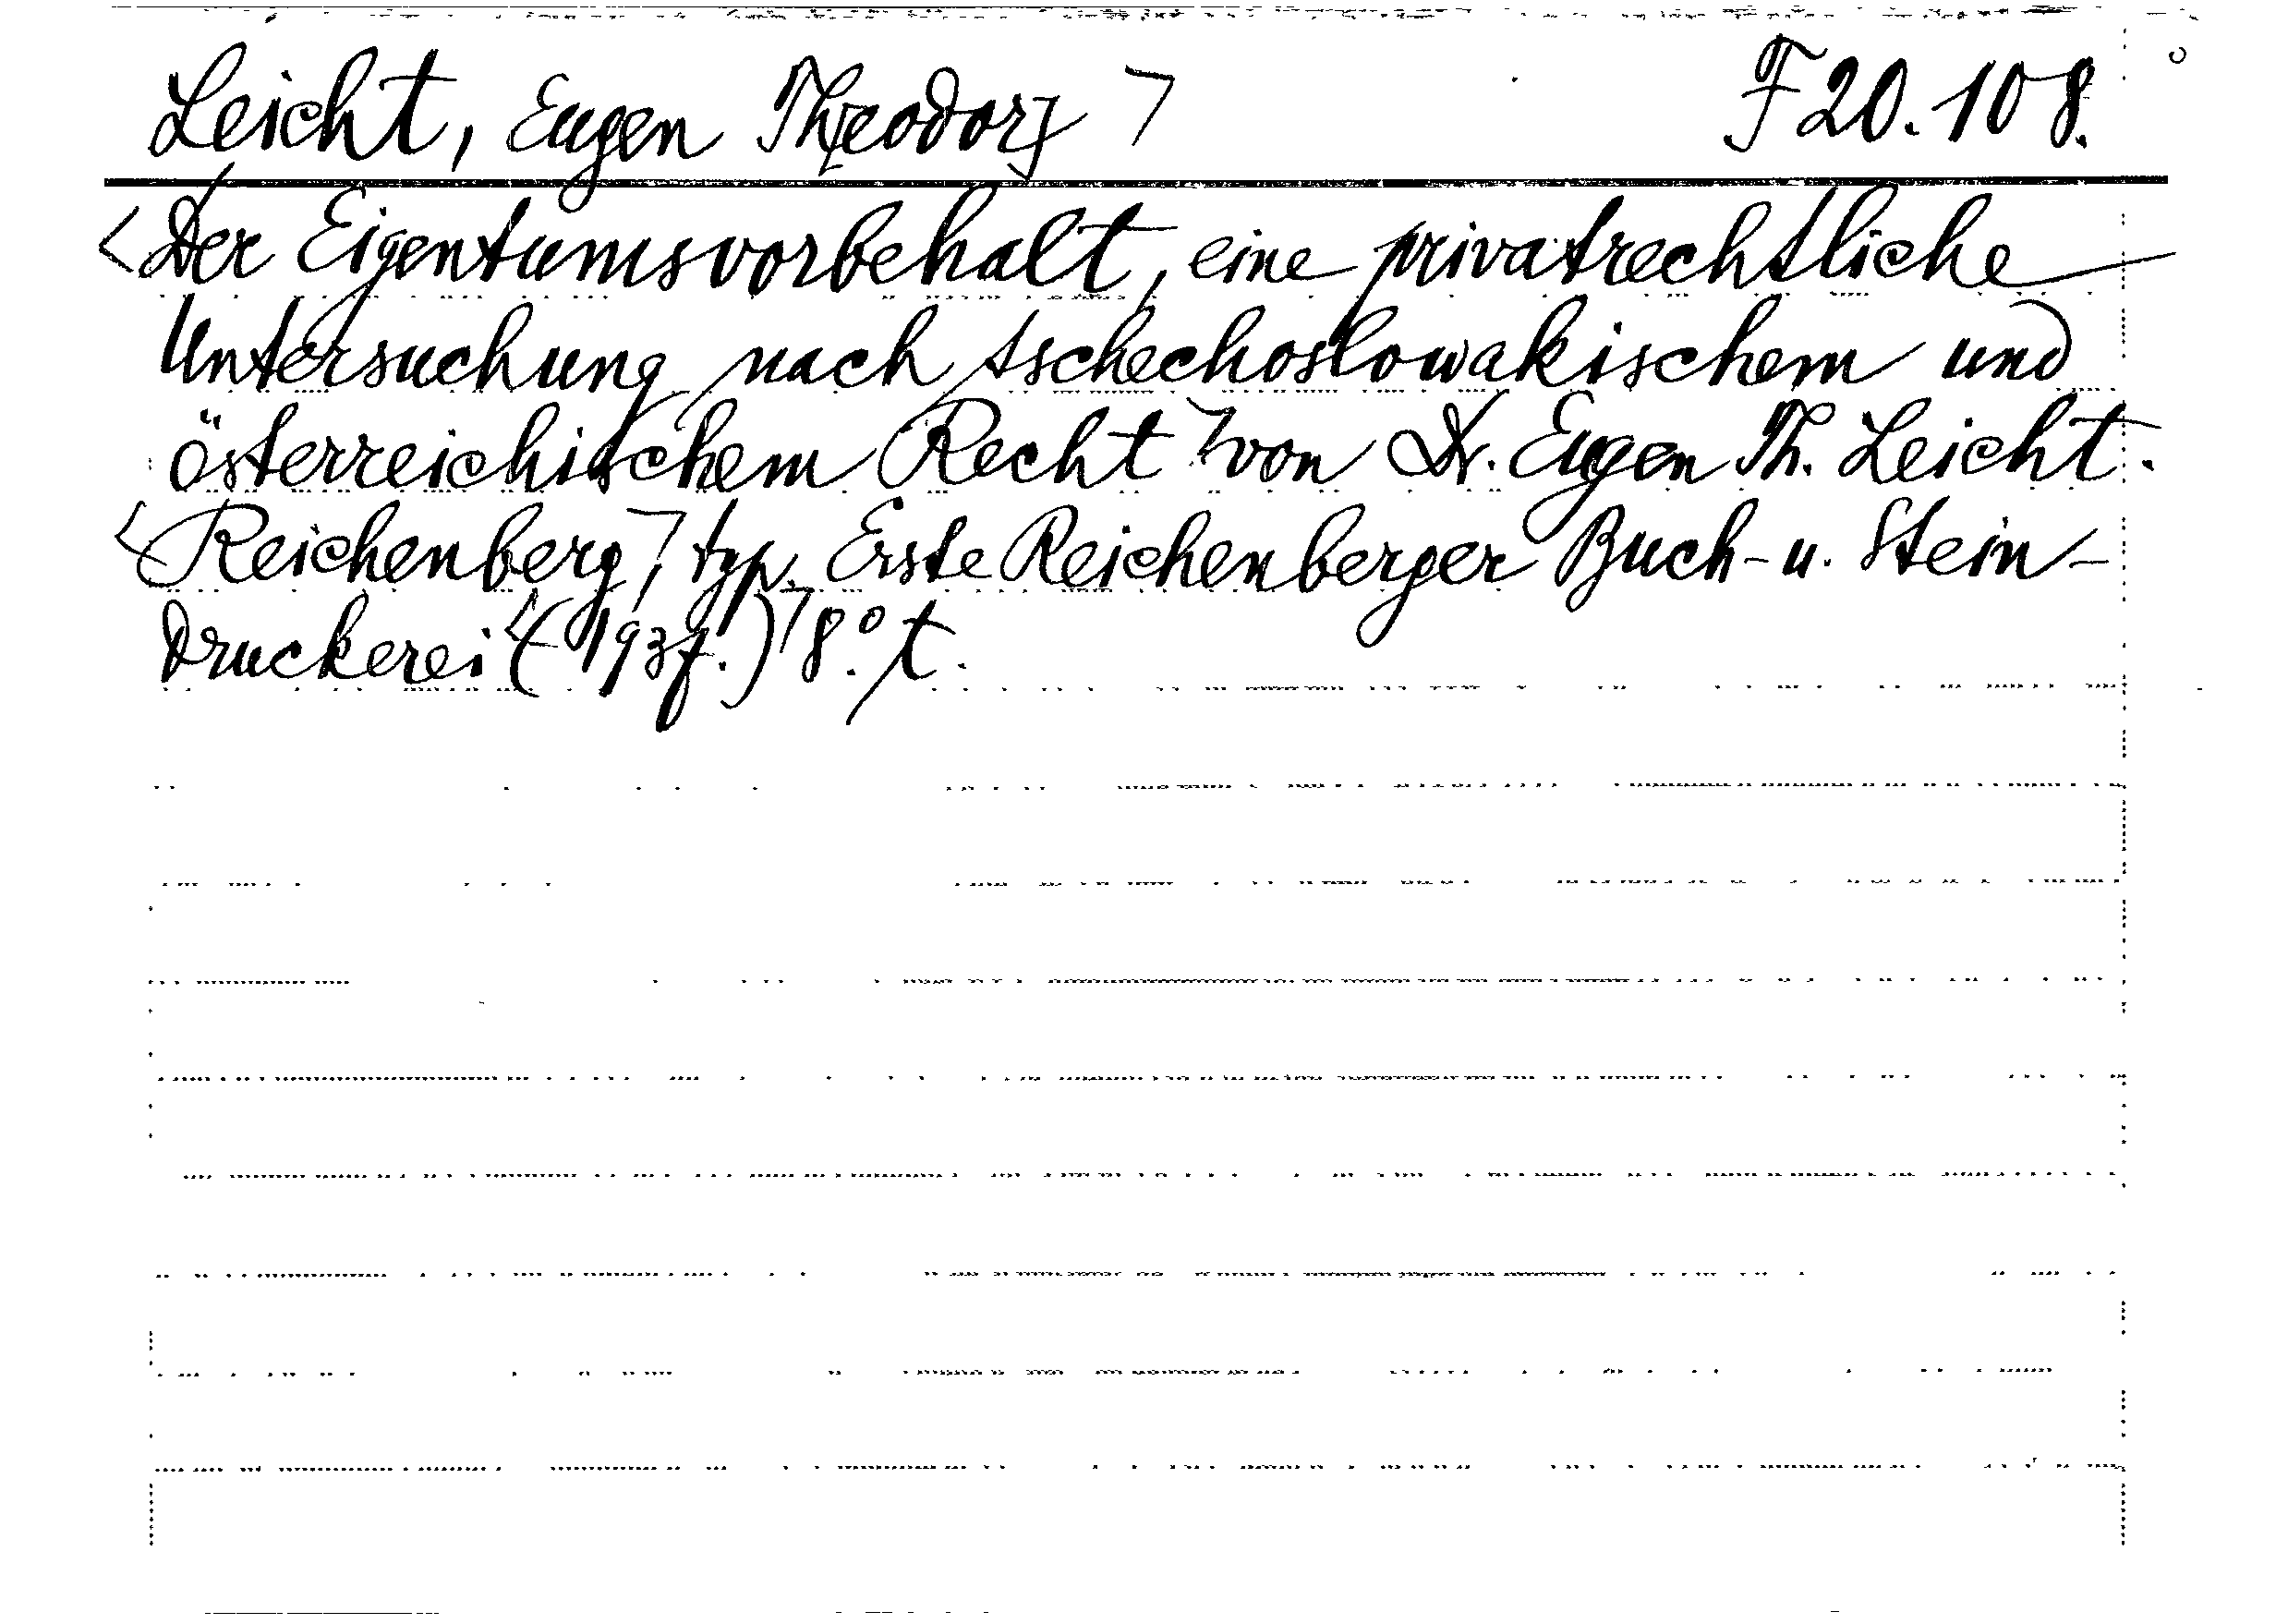 Leicht, Eugen Th[eodor] > F 20.108.
<Der Eigentumsvorbehalt, eine privatrechtliche
Untersuchung nach tschechoslowakischem und
österreichischem Recht > von Dr. Eugen Th. Leicht.
<Reichenberg>, typ. Erste Reichenberger Buch- u. Stein-
druckerei <(1937.)> 8°. t.